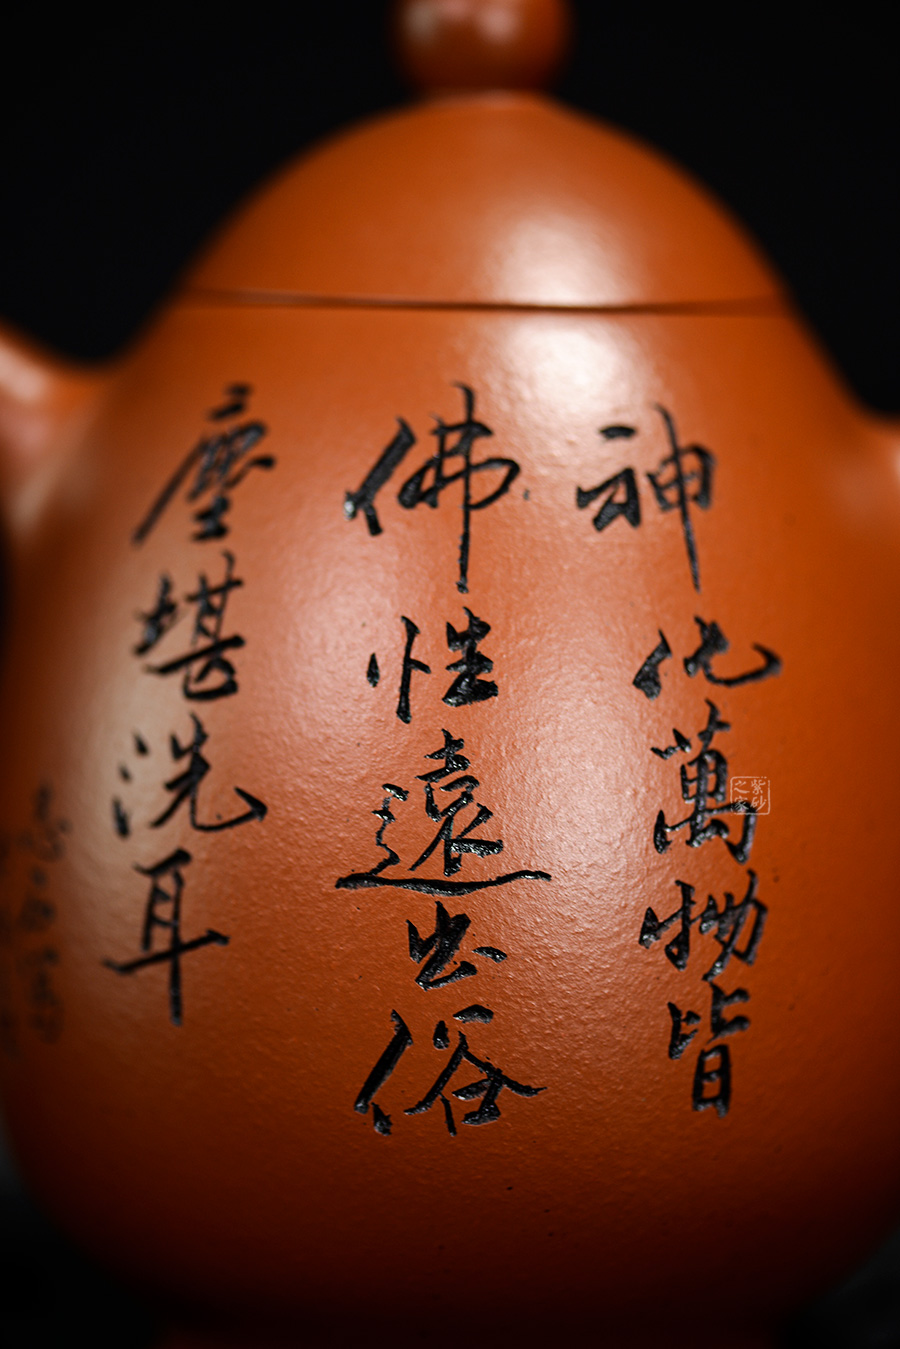 神化萬物皆
佛性遠出俗
塵堪洗耳
紫砂之家